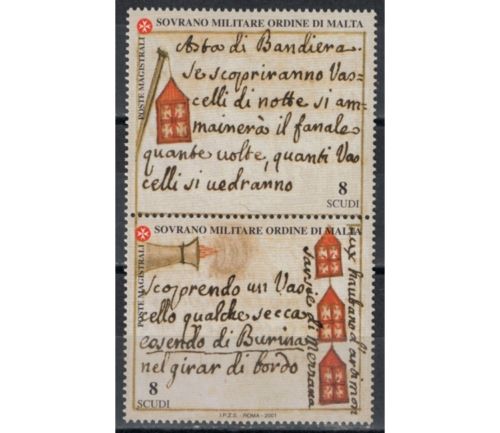 SOVRANO MILITARE ORDINE DI MALTA
POSTE MAGISTRALI
Asta di Bandiera.
se scopriranno Vas=
celli di notte si am=
mainerà il fanale
quante volte, quanti Vas
celli si vedranno
8
SCUDI
SOVRANO MILITARE ORDINE DI MALTA
POSTE MAGISTRALI
scoprendo un Vas
cello qualche secca
cosendo di Burina
nel girar di bordo
8
SCUDI
sarsie di Mezzana
I.P.Z.S. - ROMA - 2001